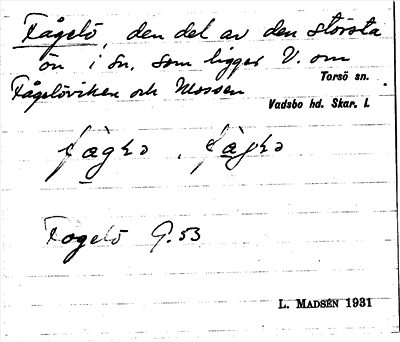 Fågelö, den del av den största
ön i sn. som ligger V. om
Torsö sn.
Fågelöviken och Mossen.
Vadsbo hd. Skar. l.
Fogelö G. 53
L. MADSÉN 1931